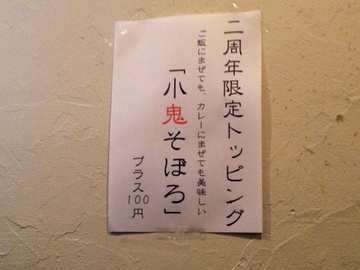 二周年限定トッピング
ご飯にまぜても、カレーにまぜても美味しい
「小鬼そぼろ」
プラス100円